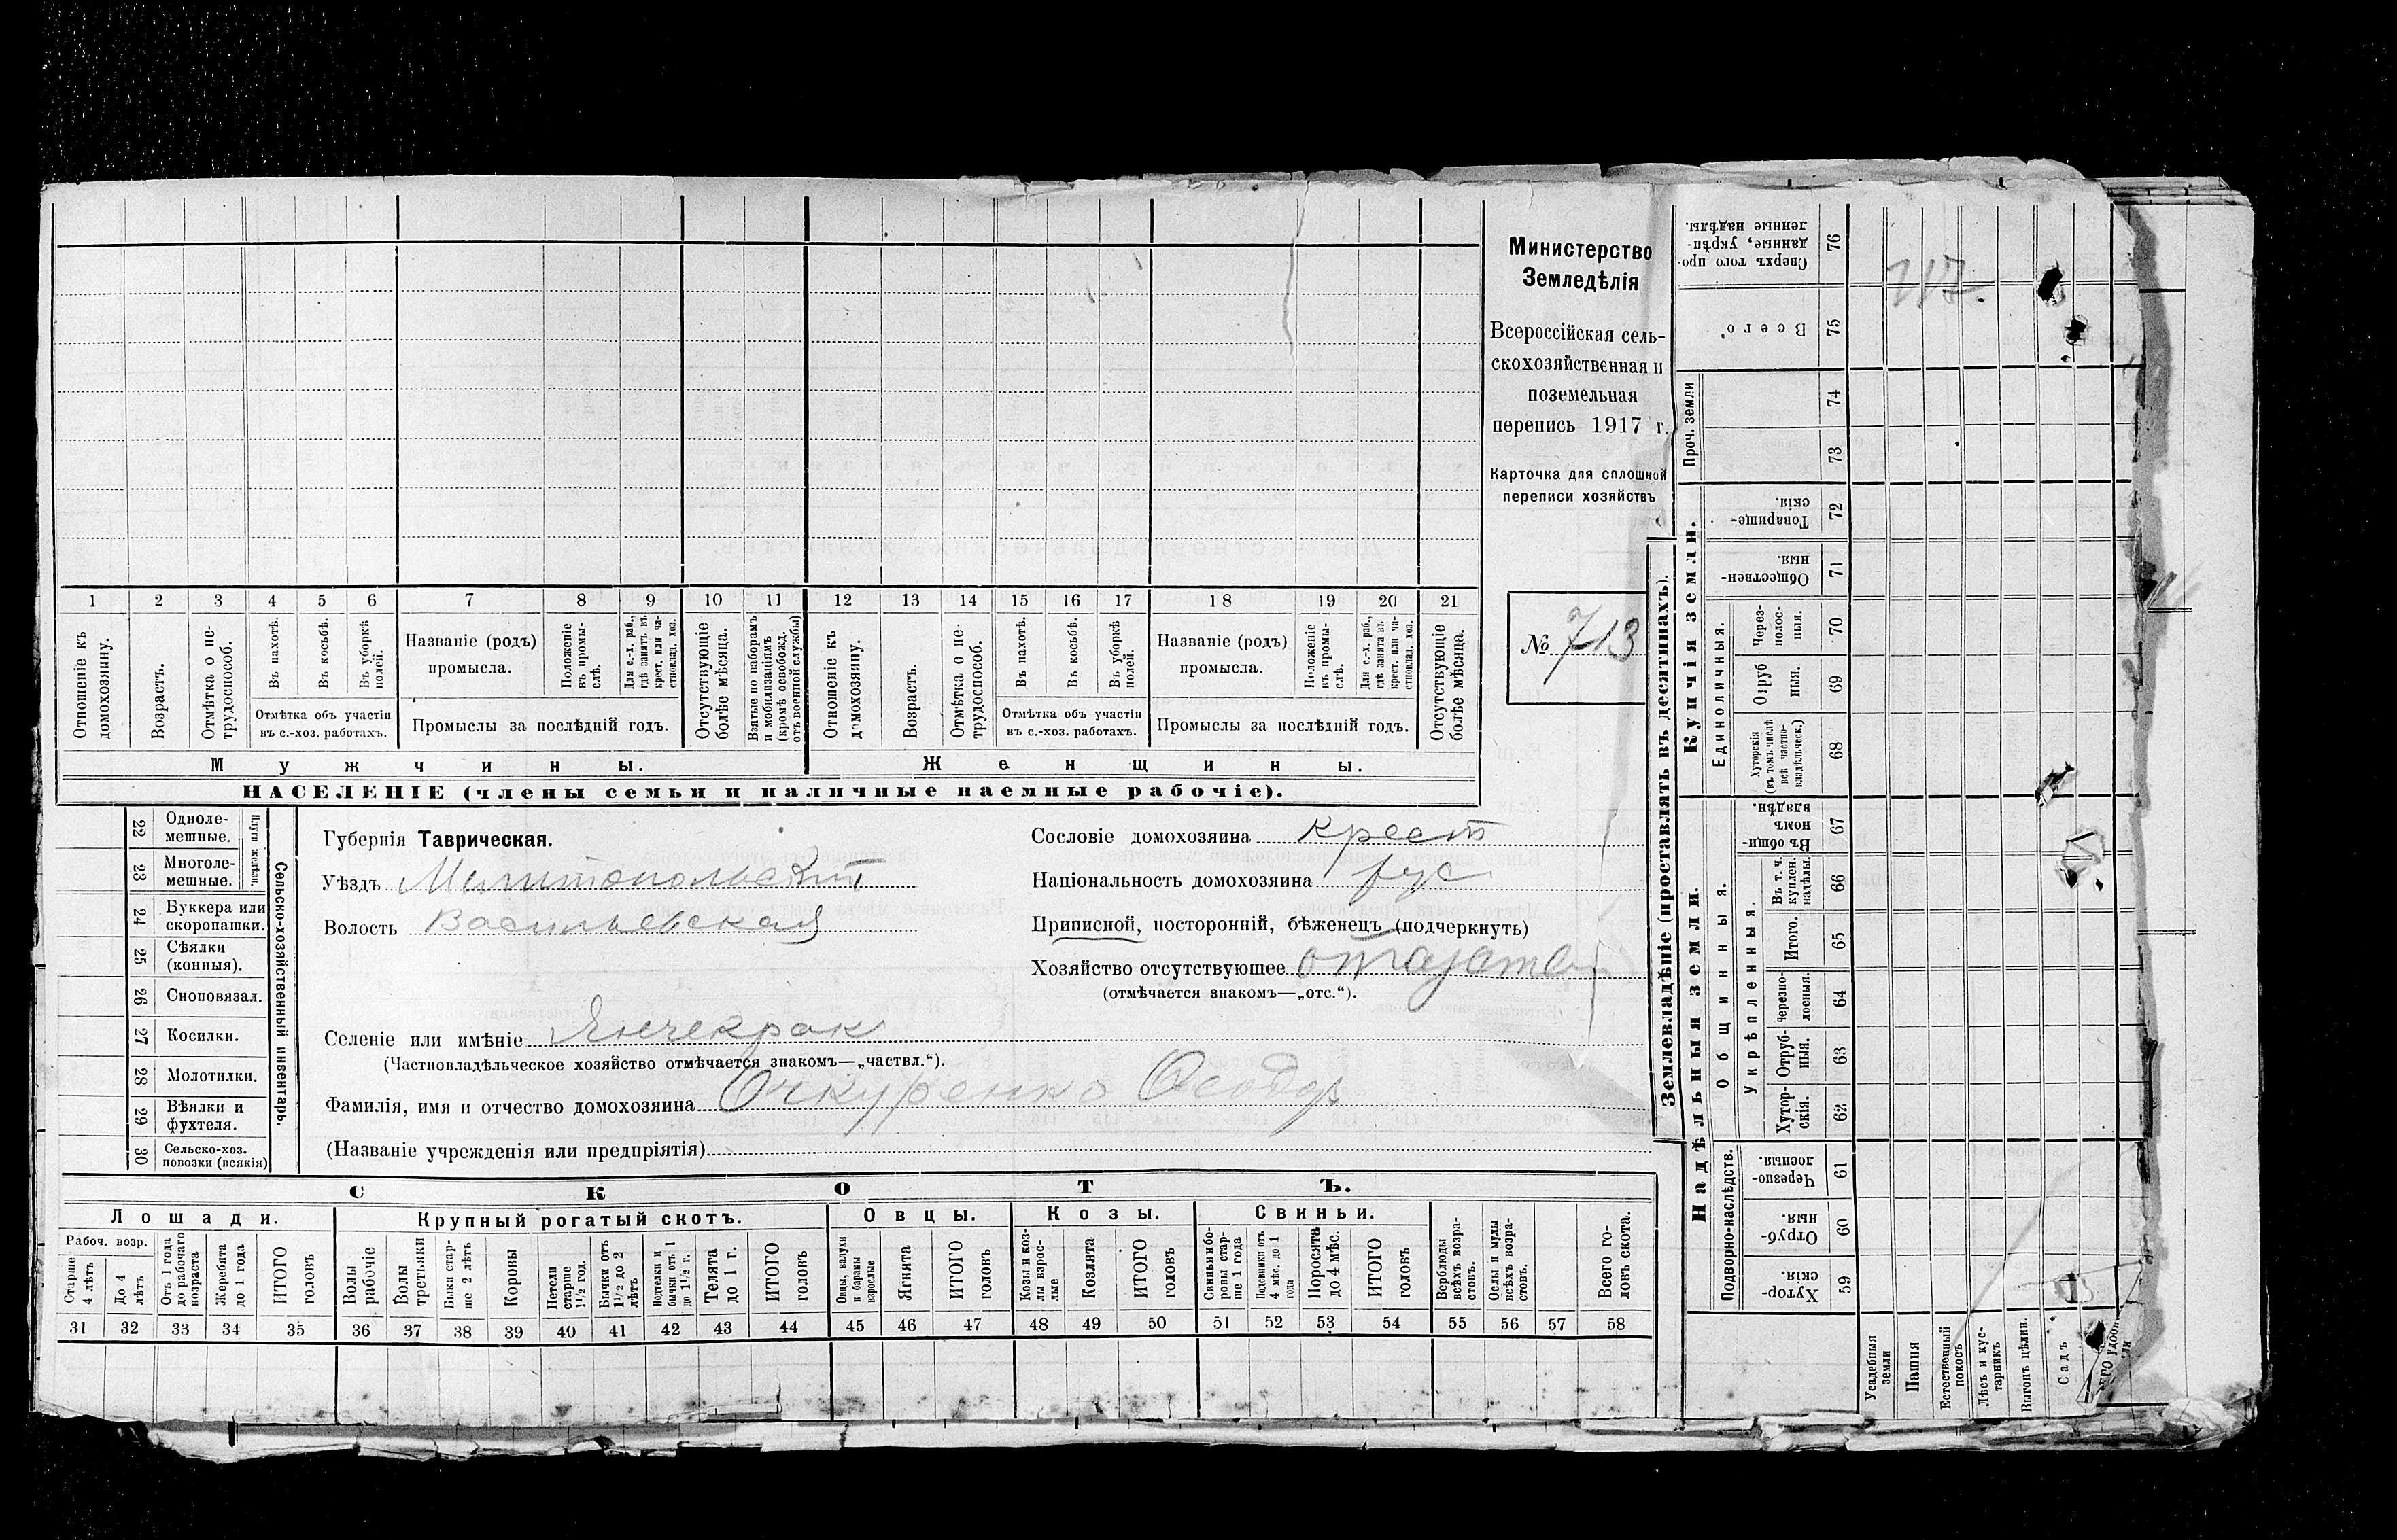 Министерство
Земледѣлія
Всероссійская сель-
скохозяйственная и
поземельная
перепись 1917 г.
Карточка для сплошной
переписи хозяйствъ
№ 713
1 2 3 4 5 6 7 8 9 10 11 12 13 14 15 16 17 18 19 20 21
Отношеніе къ домохозяину.
Возрастъ.
Отмѣтка о не-трудоспособ.
Въ пахотѣ.
Въ косьбѣ.
Въ уборкѣ полей.
Отмѣтка объ участіи
въ с.-хоз. работахъ.
Названіе (родъ)
промысла.
Положеніе въ промы-слѣ.
Для с.-х. раб., гдѣ занятъ въ крест. или ча-стновлад. хоз.
Промыслы за послѣдній годъ.
Отсутствующіе болѣе мѣсяца.
Взятые по наборамъ и мобилизаціямъ (кромѣ освобожд. отъ военной службы)
Отношеніе къ домохозяину.
Возрастъ.
Отмѣтка о не-трудоспособ.
Въ пахотѣ.
Въ косьбѣ.
Въ уборкѣ полей.
Отмѣтка объ участіи
въ с.-хоз. работахъ.
Названіе (родъ)
промысла.
Положеніе въ промы-слѣ.
Для с.-х. раб., гдѣ занята въ крест. или ча-стновлад. хоз.
Промыслы за послѣдній годъ.
Отсутствующіе болѣе мѣсяца.
Мужчины.
Женщины.
НАСЕЛЕНІЕ (члены семьи и наличные наемные рабочіе).
22 Одноле-мешные.
23 Многоле-мешные.
Плуги желѣзн.
24 Буккера или скоропашки.
25 Сѣялки (конныя).
26 Сноповязал.
27 Косилки.
28 Молотилки.
29 Вѣялки и фухтеля.
30 Сельско-хоз. повозки (всякія)
Сельско-хозяйственный инвентарь.
Губернія Таврическая.
Уѣздъ Мелитопольскій
Волость Васильевская
Сословіе домохозяина крест
Національность домохозяина рус
Приписной, посторонній, бѣженецъ (подчеркнуть)
Хозяйство отсутствующее
(отмѣчается знакомъ—„отс.“).
Селеніе или имѣніе Янчекрак
(Частновладѣльческое хозяйство отмѣчается знакомъ—„частвл.“).
Фамилія, имя и отчество домохозяина Очкуренко Ѳеодор
(Названіе учрежденія или предпріятія)
СКОТЪ.
Лошади.
Крупный рогатый скотъ.
Овцы.
Козы.
Свиньи.
Рабоч. возр.
Старше 4 лѣтъ
До 4 лѣтъ
Отъ 1 года до рабочаго возраста
Жеребята до 1 года
ИТОГО головъ
Волы рабочіе
Волы третьяки
Быки стар-ше 2 лѣтъ
Коровы
Нетели старше 1½ год.
Бычки отъ 1½ до 2 лѣтъ
Подтелки и бычки отъ 1 до 1½ г.
Телята до 1 г.
ИТОГО головъ
Овцы, валухи и бараны взрослые
Ягнята
ИТОГО головъ
Козы и коз-лы взрос-лые
Козлята
ИТОГО головъ
Свиньи и бо-ровы стар-ше 1 года
Подсвинки отъ 4 мѣс. до 1 года
Поросята до 4 мѣс.
ИТОГО головъ
Верблюды всѣхъ возра-стовъ.
Ослы и мулы всѣхъ возра-стовъ.
Всего го-ловъ скота.
31 32 33 34 35 36 37 38 39 40 41 42 43 44 45 46 47 48 49 50 51 52 53 54 55 56 57 58
Землевладѣніе (проставлять въ десятинахъ).
Надѣльныя земли.
Купчія земли.
Проч. земли
Подворно-наслѣдств.
Общинныя.
Укрѣпленныя.
Единоличныя.
Сверхъ того про-данные, укрѣп-ленные надѣлы. 76
Всего 75
74
73
Товарище-скія. 72
Обществен-ныя. 71
Через-полос-ныя. 70
Отруб-ныя. 69
Хуторскія (въ томъ числѣ всѣ частно-владѣльческ.) 68
Въ общи-номъ владѣн. 67
Въ т. ч. куплен. надѣлы. 66
Итого. 65
Черезпо-лосныя 64
Отруб-ныя. 63
Хутор-скія. 62
Черезпо-лосныя. 61
Отруб-ныя. 60
Хутор-скія. 59
Усадебныя земли
Пашня
Естественный покосъ
Лѣсъ и кус-тарникъ
Выгонъ цѣлин.
Садъ